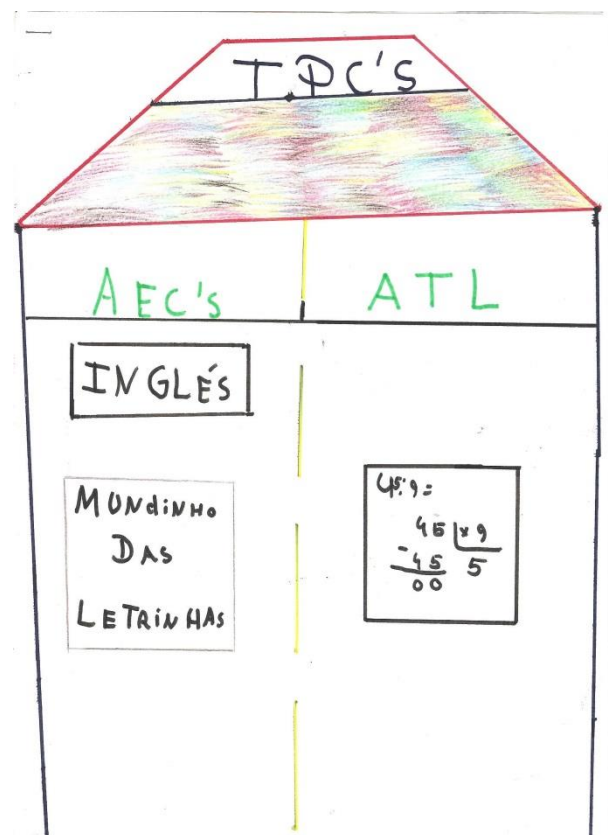 TPC'S
AEC'S
ATL
INGLÉS
MUNdiNHO
DAS
LETRiNHAS
45:9=
45 |x 9
-45 5
00